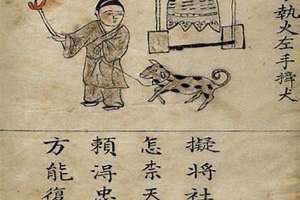 執火左手犬
擬將社
怎柰天
賴淂忠
方能復